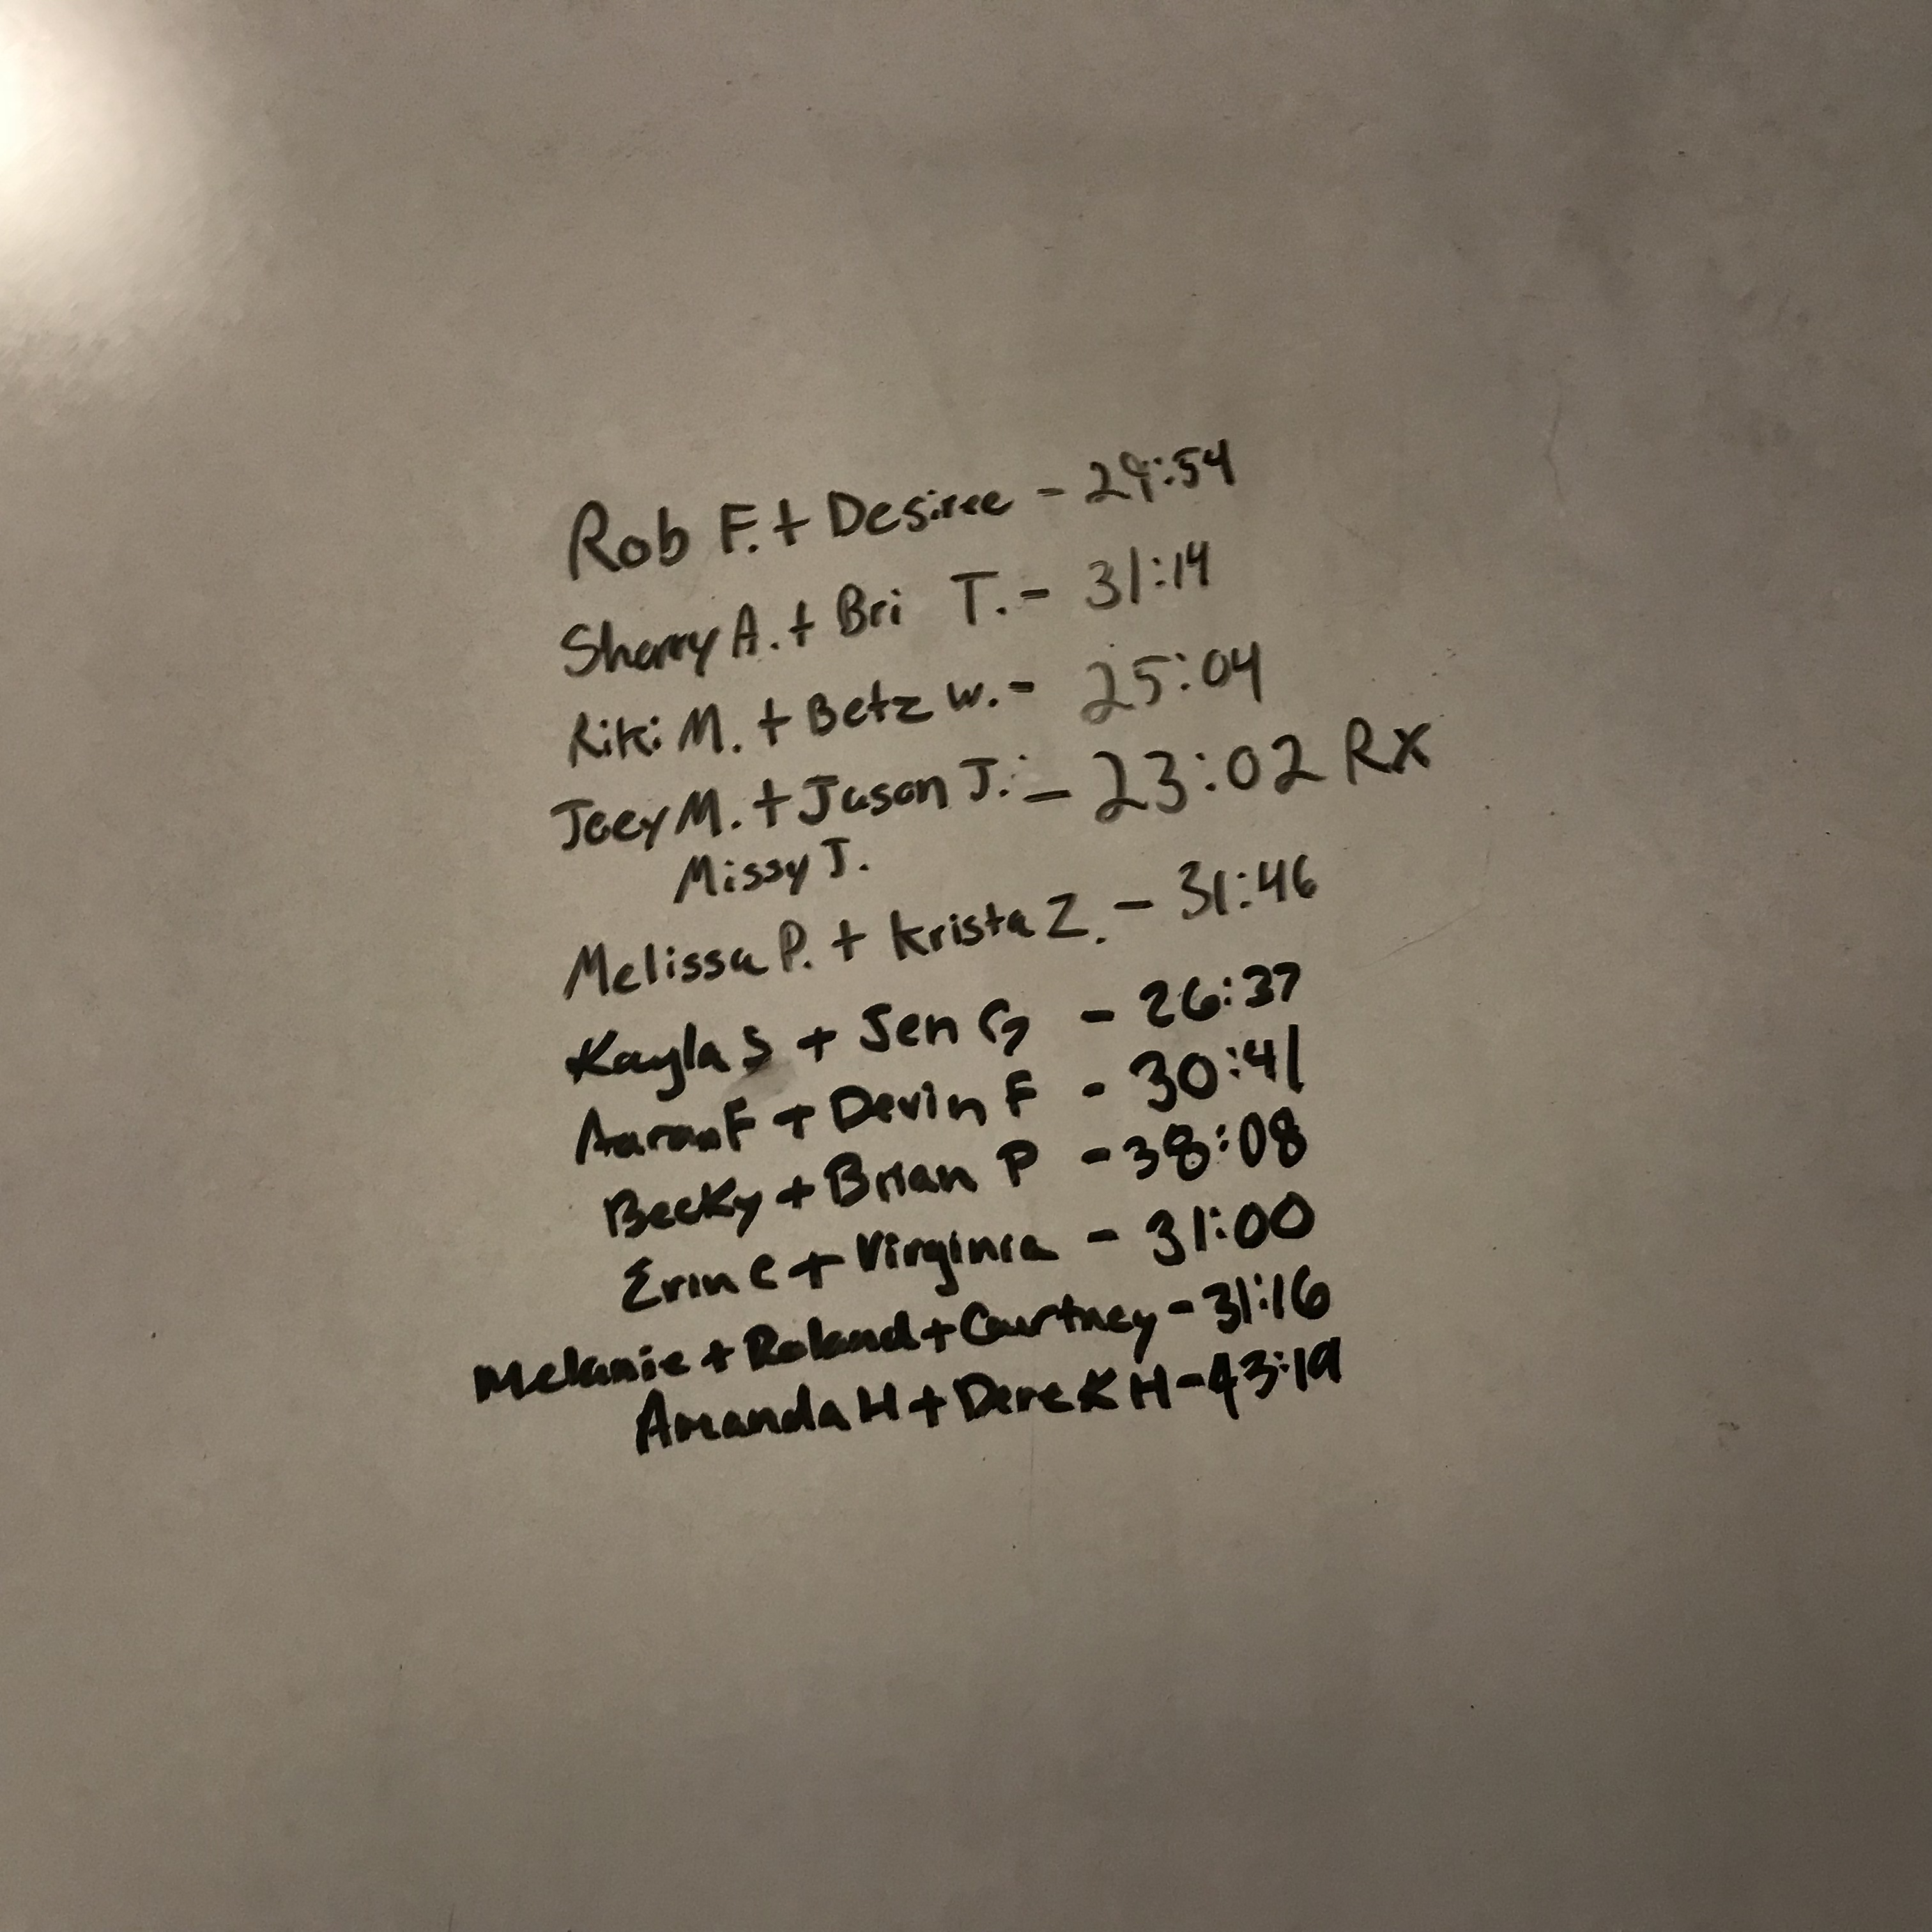 Rob F. + Desiree - 29:54
Sherry A. + Bri T. - 31:14
Riki M. + Betz W. - 25:04
Joey M. + Jason J. - 23:02 RX
Missy J.
Melissa P. + Krista Z. - 31:46
Kayla S + Jen G - 26:37
Aaron F + Devin F - 30:41
Becky + Brian P - 38:08
Erin C + Virginia - 31:00
Melanie + Roland + Courtney - 31:16
Amanda H + Derek H - 43:19